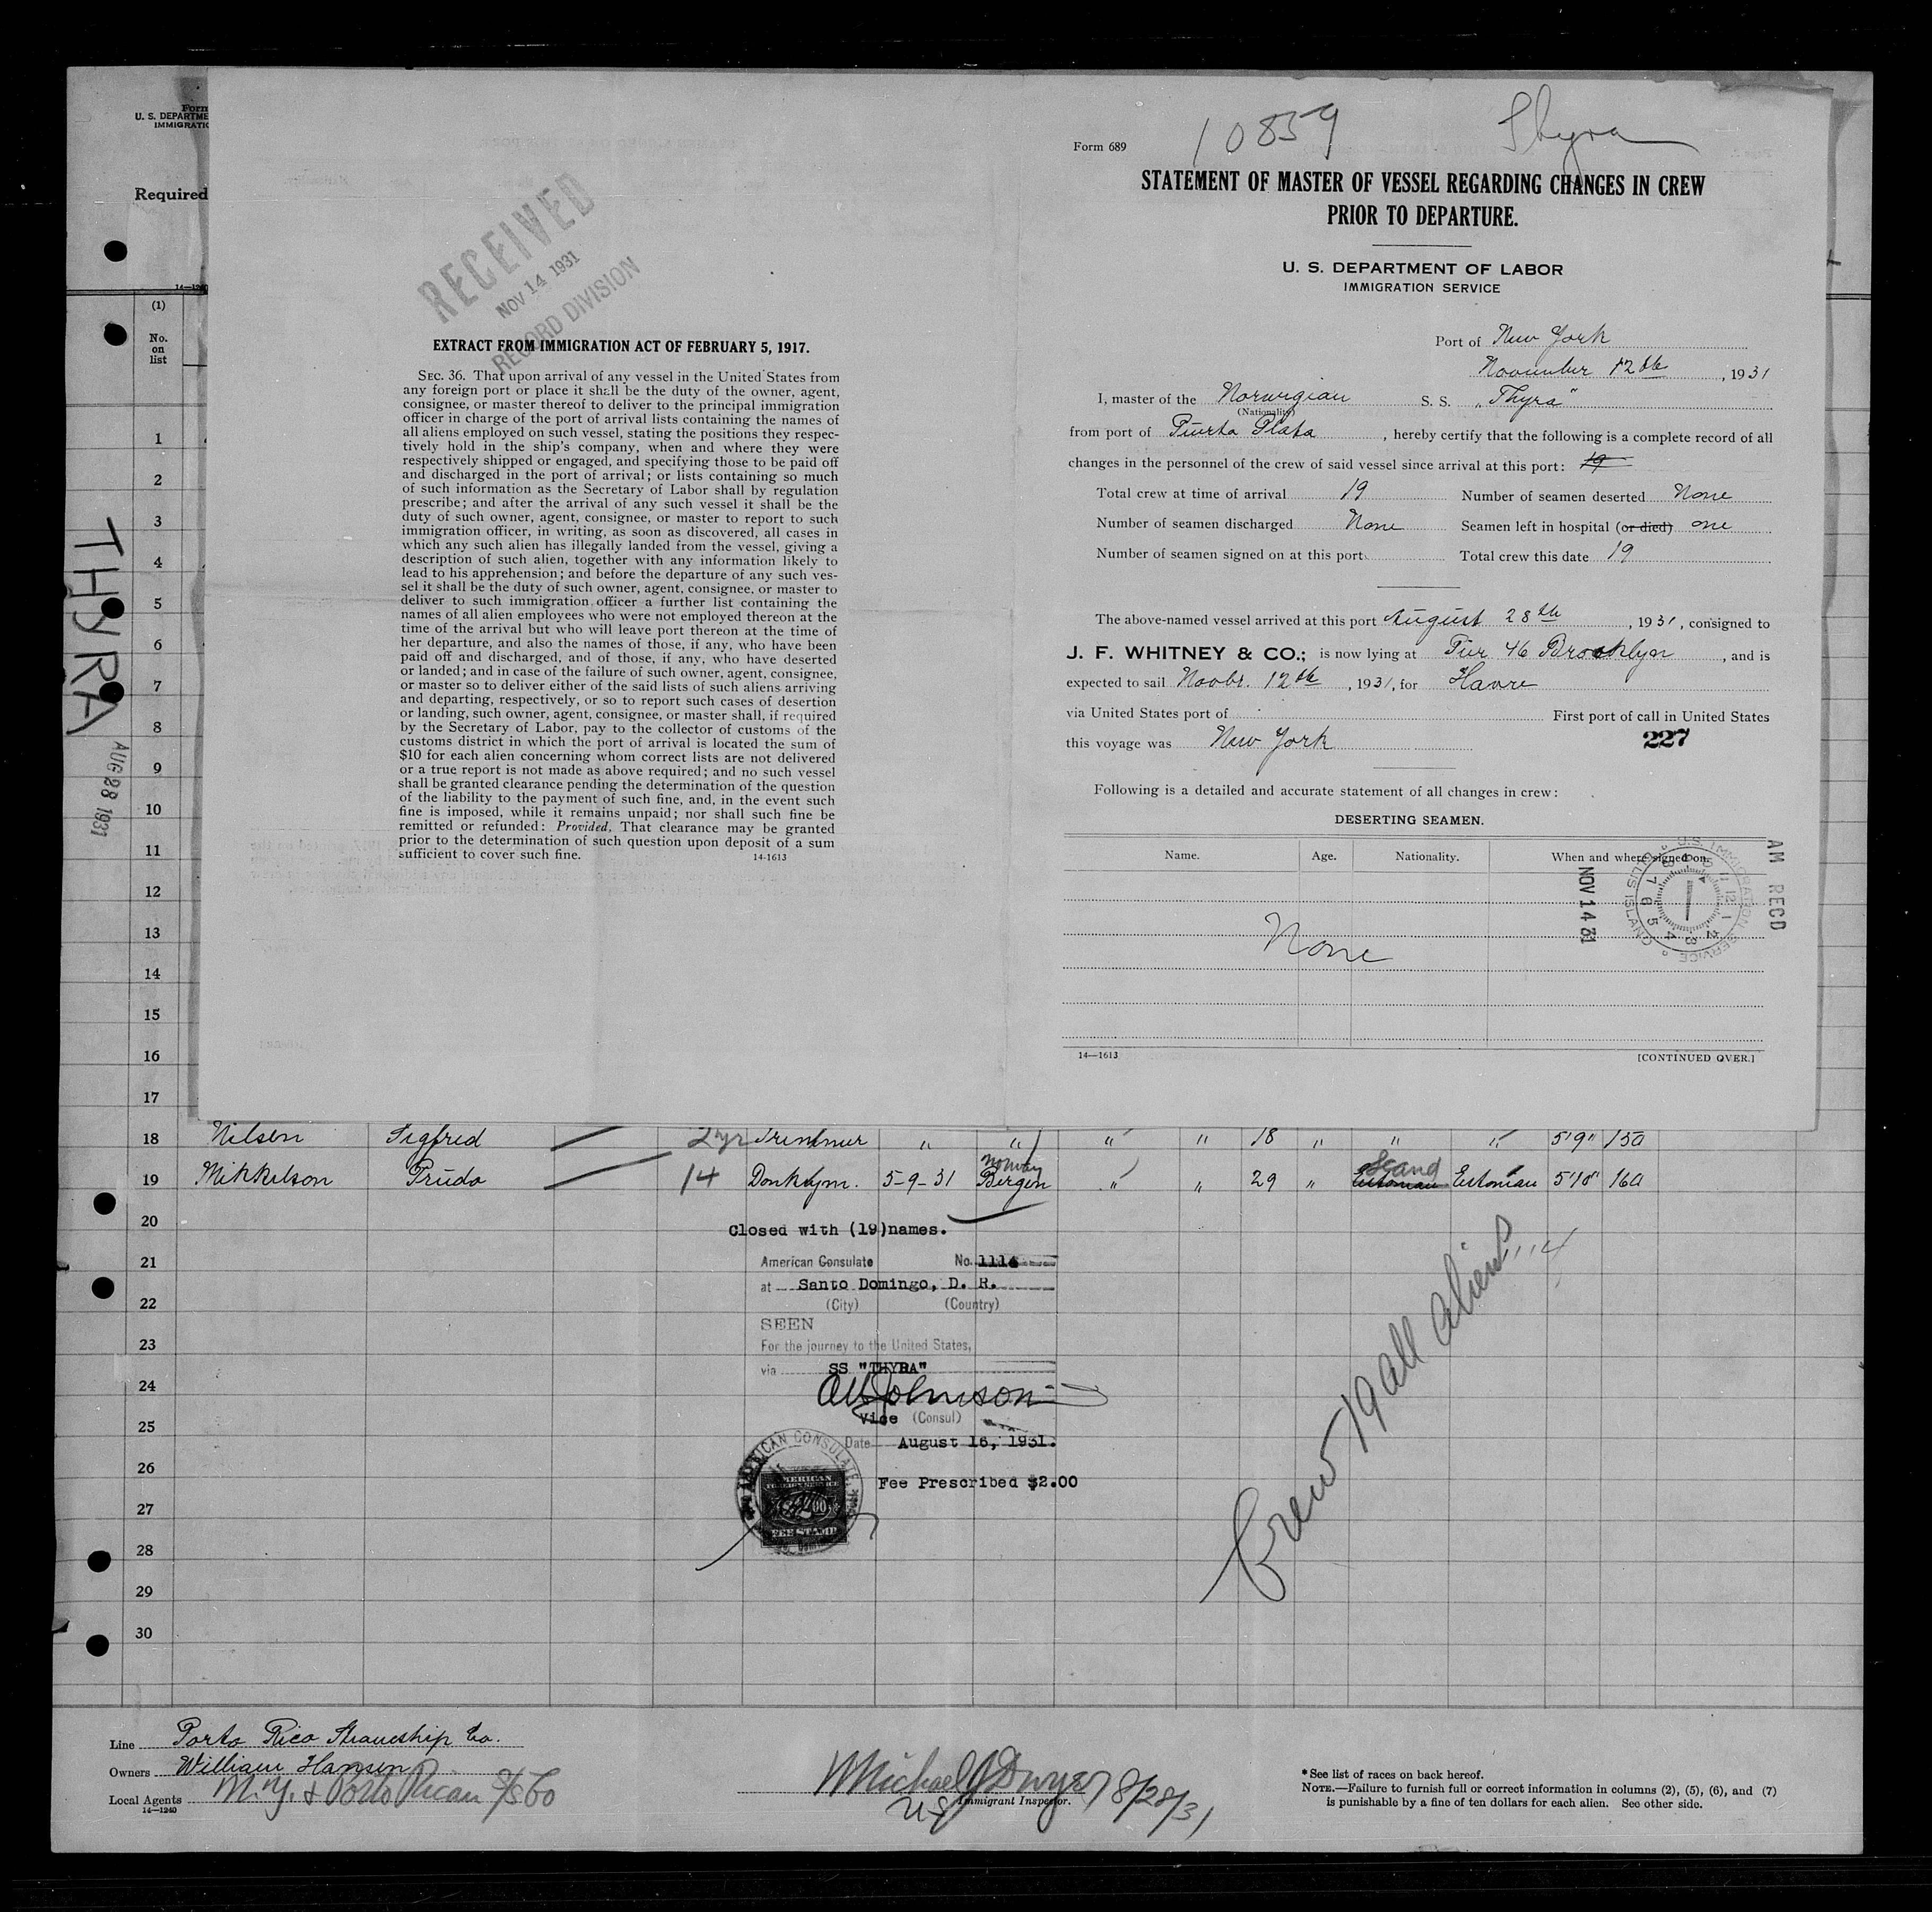 Form
U. S. DEPARTME
IMMIGRATIO
Required
14—1240
(1)
No.
on
list
1
2
3
4
5
6
7
8
9
10
11
12
13
14
15
16
17
THYRA
AUG 28 1931
RECEIVED
NOV 14 1931
RECORD DIVISION
EXTRACT FROM IMMIGRATION ACT OF FEBRUARY 5, 1917.
SEC. 36. That upon arrival of any vessel in the United States from
any foreign port or place it shall be the duty of the owner, agent,
consignee, or master thereof to deliver to the principal immigration
officer in charge of the port of arrival lists containing the names of
all aliens employed on such vessel, stating the positions they respec-
tively hold in the ship's company, when and where they were
respectively shipped or engaged, and specifying those to be paid off
and discharged in the port of arrival; or lists containing so much
of such information as the Secretary of Labor shall by regulation
prescribe; and after the arrival of any such vessel it shall be the
duty of such owner, agent, consignee, or master to report to such
immigration officer, in writing, as soon as discovered, all cases in
which any such alien has illegally landed from the vessel, giving a
description of such alien, together with any information likely to
lead to his apprehension; and before the departure of any such ves-
sel it shall be the duty of such owner, agent, consignee, or master to
deliver to such immigration officer a further list containing the
names of all alien employees who were not employed thereon at the
time of the arrival but who will leave port thereon at the time of
her departure, and also the names of those, if any, who have been
paid off and discharged, and of those, if any, who have deserted
or landed; and in case of the failure of such owner, agent, consignee,
or master so to deliver either of the said lists of such aliens arriving
and departing, respectively, or so to report such cases of desertion
or landing, such owner, agent, consignee, or master shall, if required
by the Secretary of Labor, pay to the collector of customs of the
customs district in which the port of arrival is located the sum of
$10 for each alien concerning whom correct lists are not delivered
or a true report is not made as above required; and no such vessel
shall be granted clearance pending the determination of the question
of the liability to the payment of such fine, and, in the event such
fine is imposed, while it remains unpaid; nor shall such fine be
remitted or refunded: Provided, That clearance may be granted
prior to the determination of such question upon deposit of a sum
sufficient to cover such fine.
14-1613
Form 689
10859
Thyra
STATEMENT OF MASTER OF VESSEL REGARDING CHANGES IN CREW
PRIOR TO DEPARTURE.
U. S. DEPARTMENT OF LABOR
IMMIGRATION SERVICE
Port of New York
November 12th, 1931
I, master of the Norwegian S. S. "Thyra"
(Nationality)
from port of Puerta Plata, hereby certify that the following is a complete record of all
changes in the personnel of the crew of said vessel since arrival at this port: 19
Total crew at time of arrival 19 Number of seamen deserted None
Number of seamen discharged None Seamen left in hospital (or died) one
Number of seamen signed on at this port Total crew this date 19
The above-named vessel arrived at this port August 28th, 1931, consigned to
J. F. WHITNEY & CO.; is now lying at Pier 46 Brooklyn, and is
expected to sail Novbr. 12th, 1931, for Havre
via United States port of First port of call in United States
this voyage was New York 227
Following is a detailed and accurate statement of all changes in crew:
DESERTING SEAMEN.
Name. Age. Nationality. When and where signed on.
None
NOV 14 31
U.S. IMMIGRATION SERVICE
ELLIS ISLAND
AM RECD
14—1613 [CONTINUED OVER.]
18 Nilsen Sigfred 2 yr Trimmer " " " " 18 " " " 5'9" 150
19 Mikkelson Priido 14 Donkeym. 5-9-31 Norway Bergen " " 29 " Estonian Scand Estonian 5'10" 160
20
21
22
23
24
25
26
27
28
29
30
Closed with (19) names.
American Consulate No. 1114
at Santo Domingo, D. R.
(City) (Country)
SEEN
For the journey to the United States,
via SS "THYRA"
Johnson
Vice (Consul)
Date August 16, 1931.
Fee Prescribed $2.00
AMERICAN CONSULATE
AMERICAN
FOREIGN SERVICE
FEE STAMP
Crew 19 all aliens
1114
Line Porto Rico Steamship Co.
Owners William Hansen
Local Agents N.Y. & Porto Rican S/S Co
14—1240
Michael J Dwyer 8/28/31
Immigrant Inspector.
* See list of races on back hereof.
NOTE.—Failure to furnish full or correct information in columns (2), (5), (6), and (7)
is punishable by a fine of ten dollars for each alien. See other side.